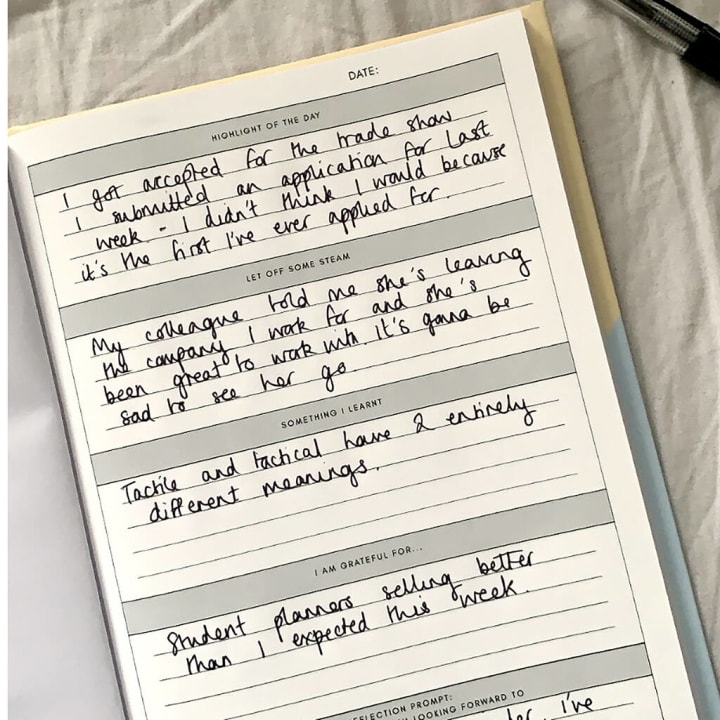 DATE:
HIGHLIGHT OF THE DAY
I got accepted for the trade show
I submitted an application for last
week - I didn't think I would because
it's the first I've ever applied for.
LET OFF SOME STEAM
My colleague told me she's leaving
the company I work for and she's
been great to work with. it's gonna be
sad to see her go.
SOMETHING I LEARNT
Tactile and tactical have 2 entirely
different meanings.
I AM GRATEFUL FOR...
Student planners selling better
than I expected this week.
REFLECTION PROMPT:
LOOKING FORWARD TO
I've